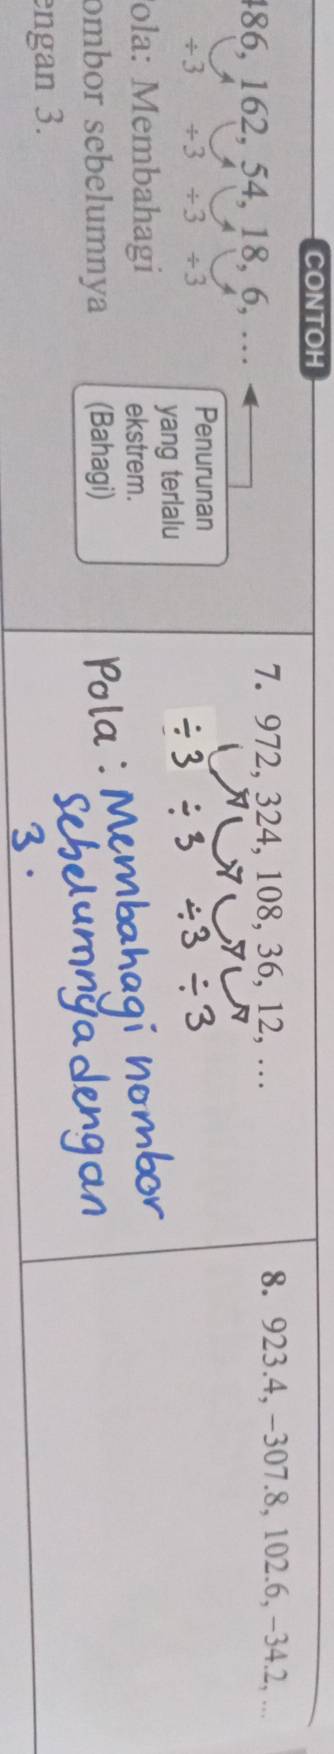 CONTOH
486, 162, 54, 18, 6, ...
÷3 ÷3 ÷3 ÷3
Pola: Membahagi
nombor sebelumnya
dengan 3.
Penurunan
yang terlalu
ekstrem.
(Bahagi)
7. 972, 324, 108, 36, 12, ...
÷3 ÷3 ÷3 ÷3
Pola: Membahagi nombor
sebelumnya dengan
3.
8. 923.4, −307.8, 102.6, −34.2, ...